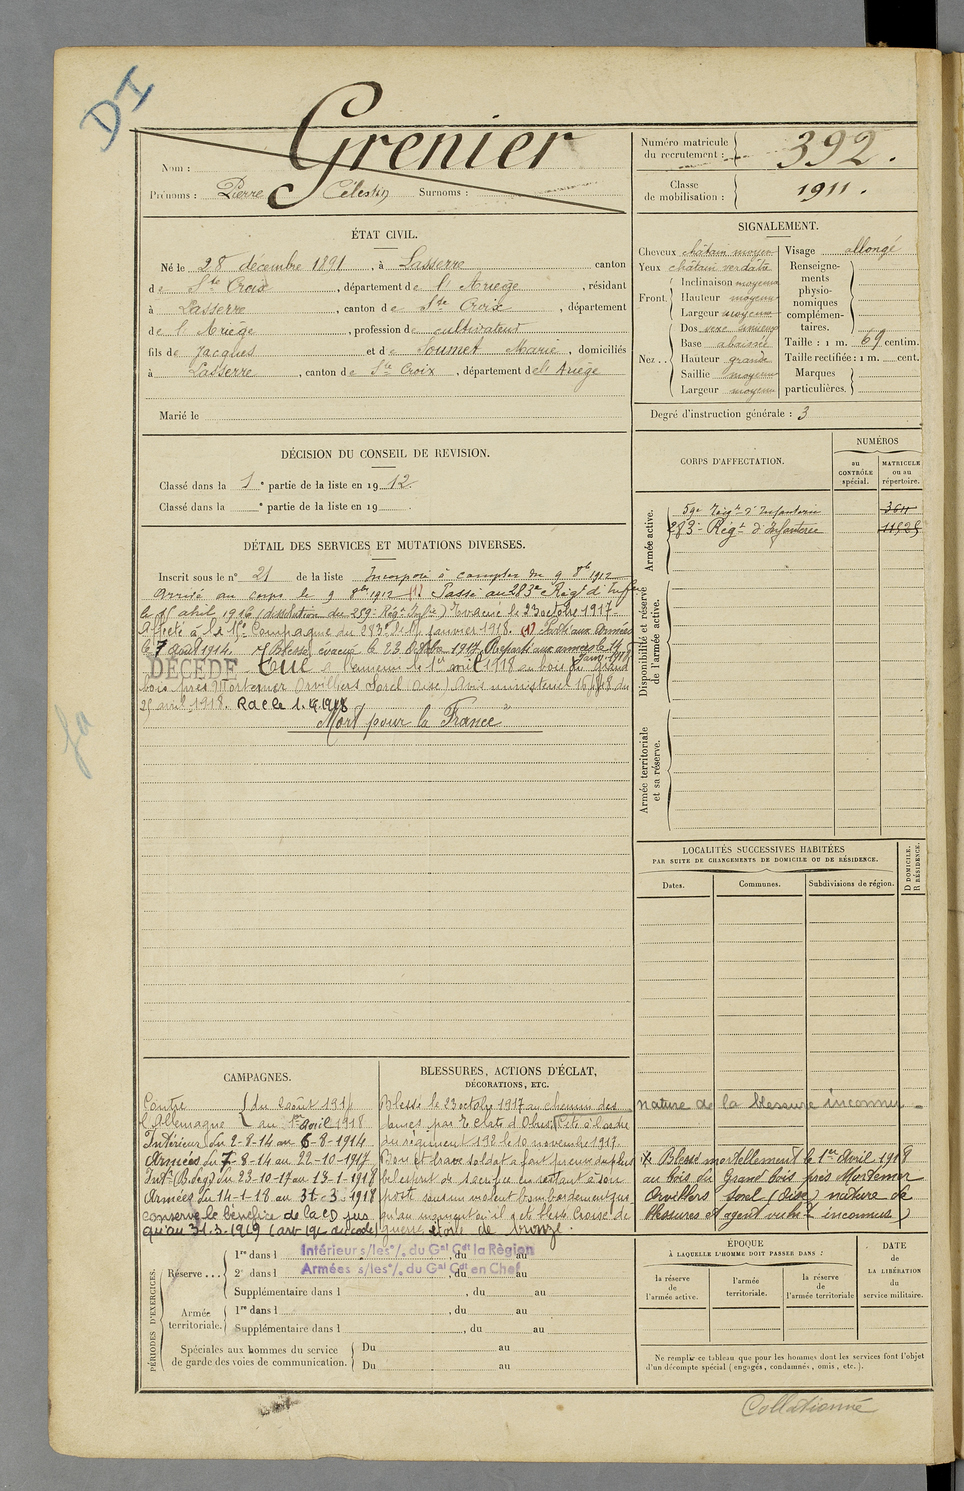 DI
Grenier
Nom :
Prénoms : Pierre Célestin Surnoms :
Numéro matricule du recrutement : 392.
Classe de mobilisation : 1911.
ÉTAT CIVIL.
Né le 28 décembre 1891, à Lasserre canton
de Ste Croix, département de l'Ariège, résidant
à Lasserre, canton de Ste Croix, département
de l'Ariège, profession de cultivateur
fils de Jacques et de Soumet Marie, domiciliés
à Lasserre, canton de Ste Croix, département de l'Ariège
Marié le
SIGNALEMENT.
Cheveux châtain moyen
Yeux châtain verdâtre
Front. Inclinaison moyenne
Hauteur moyenne
Largeur moyenne
Nez. . Dos
Base abaissée
Hauteur grande
Saillie moyenne
Largeur moyenne
Visage allongé
Renseignements physionomiques complémentaires.
Taille : 1 m. 69 centim.
Taille rectifiée : 1 m. cent.
Marques particulières.
Degré d'instruction générale : 3
DÉCISION DU CONSEIL DE REVISION.
Classé dans la 1e partie de la liste en 1912.
Classé dans la e partie de la liste en 19 .
DÉTAIL DES SERVICES ET MUTATIONS DIVERSES.
Inscrit sous le n° 21 de la liste Incorporé à compter du 9 8bre 1912
Arrivé au corps le 9 8bre 1912 (1) Passé au 283e Régt d'Inf
le 15 avril 1916 (dissolution du 259e Régt Infie) Evacué le 23 octobre 1917.
Affecté à la Mse Compagnie du 283e le 14 janvier 1918. (1) Parti aux armées
le 7 août 1914. Blessé évacué le 23 octobre 1917. Reparti aux armées le 14 Janv. 1918
DÉCÉDÉ Tué à l'ennemi le 1er avril 1918 au bois du Grand
bois près Mortemer Orvillers Sorel (Oise) Avis ministériel
25 avril 1918. Rac le 1.4.1918
"Mort pour la France"
CORPS D'AFFECTATION.
NUMÉROS
au CONTRÔLE spécial.
MATRICULE ou au répertoire.
Armée active.
59e Régt d'Infanterie
283e Régt d'Infanterie 11525
Disponibilité et réserve de l'armée active.
Armée territoriale et sa réserve.
LOCALITÉS SUCCESSIVES HABITÉES
PAR SUITE DE CHANGEMENTS DE DOMICILE OU DE RÉSIDENCE.
Dates.
Communes.
Subdivisions de région.
D DOMICILE.
R RÉSIDENCE.
CAMPAGNES.
Contre l'Allemagne du 2 août 1914
au 1er avril 1918
Intérieur du 2-8-14 au 6-8-1914
Armées du 7-8-14 au 22-10-1917
Intr (B. de g) du 23-10-17 au 13-1-1918
Armées du 14-1-18 au 31-3-1918
conserve le bénéfice de la CD jus
qu'au 31.3.1919 (arv 196 du code)
BLESSURES, ACTIONS D'ÉCLAT,
DÉCORATIONS, ETC.
Blessé le 23 octobre 1917 au chemin des
dames par éclats d'obus. Cité à l'ordre
du régiment 192 le 10 novembre 1917.
Bon et brave soldat a fait preuve du plus
bel esprit de sacrifice en restant à son
poste sous un violent bombardement jus
qu'au moment où il a été blessé. Croix de
guerre étoile de bronze.
nature de la blessure inconnue
Blessé mortellement le 1er Avril 1918
au bois du Grand bois près Mortemer
Orvillers Sorel (Oise) nature de
blessures et agent vulnt inconnus
PÉRIODES D'EXERCICES.
Réserve . . .
1re dans l , du au
Intérieur s/les o/. du Gal Cdt la Région
2e dans l , du au
Armées s/les o/. du Gal Cdt en Chef
Supplémentaire dans l , du au
Armée territoriale.
1re dans l , du au
Supplémentaire dans l , du au
Spéciales aux hommes du service de garde des voies de communication.
Du au
Du au
ÉPOQUE
À LAQUELLE L'HOMME DOIT PASSER DANS :
la réserve de l'armée active.
l'armée territoriale.
la réserve de l'armée territoriale
DATE de LA LIBÉRATION du service militaire.
Ne remplir ce tableau que pour les hommes dont les services font l'objet
d'un décompte spécial (engagés, condamnés, omis, etc.).
Collationné